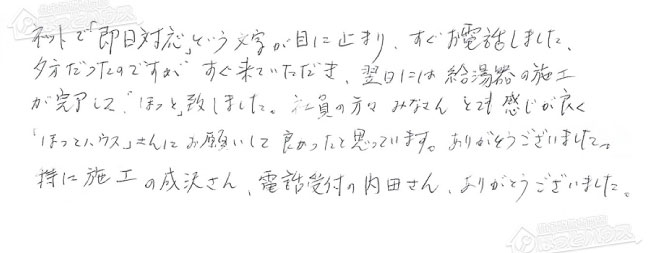 ネットで「即日対応」という文字が目に止まり、すぐお電話しました、
夕方だったのですが すぐ来ていただき、翌日には給湯器の施工
が完了して、「ほっと」致しました。社員の方々 みなさん とても感じが良く
「ほっとハウス」さんにお願いして良かったと思っています。ありがとうございました。
特に施工の成沢さん、電話受付の内田さん、ありがとうございました。